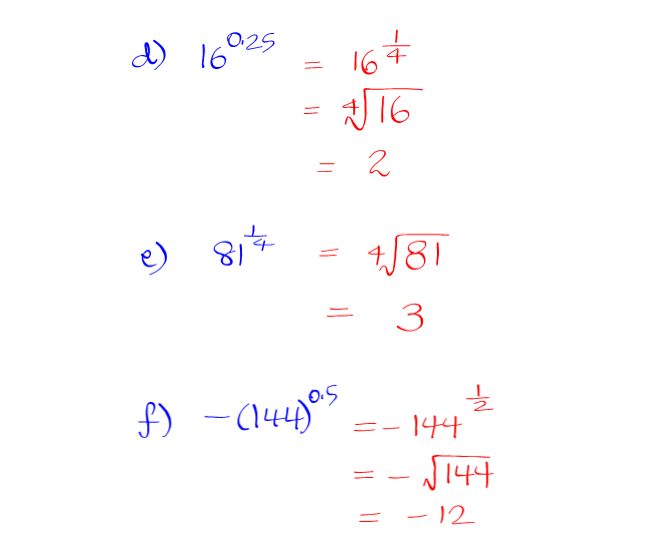 d) 16^0.25 = 16^1/4
= ∜16
= 2
e) 81^1/4 = ∜81
= 3
f) -(144)^0.5 = -144^1/2
= -√144
= -12